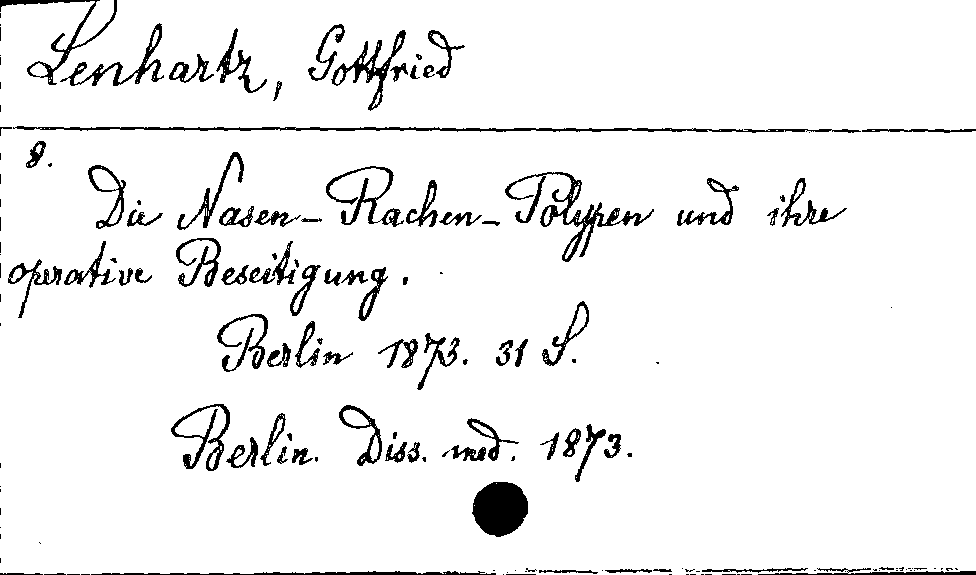 Lenhartz, Gottfried
8.
Die Nasen-Rachen-Polypen und ihre
operative Beseitigung.
Berlin 1873. 31 S.
Berlin. Diss. med. 1873.